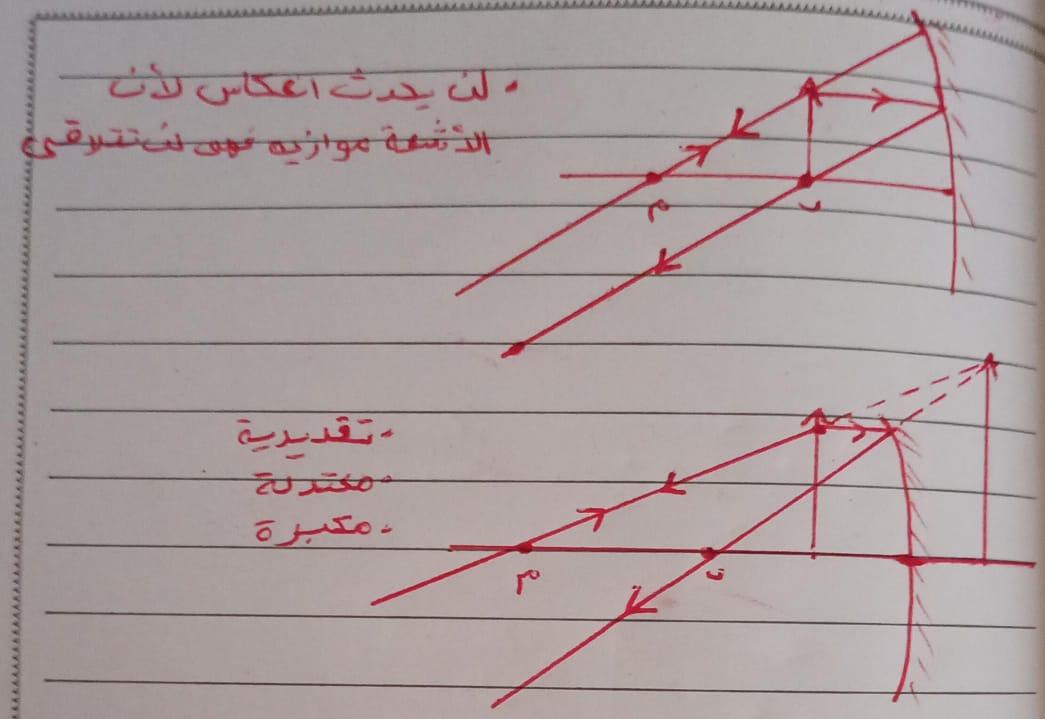 • لن يحدث انعكاس لأن
الأشعة موازيه فهى لن تتلاقى
م
ب
- تقديرية
- معتدلة
- مكبرة
م
ب